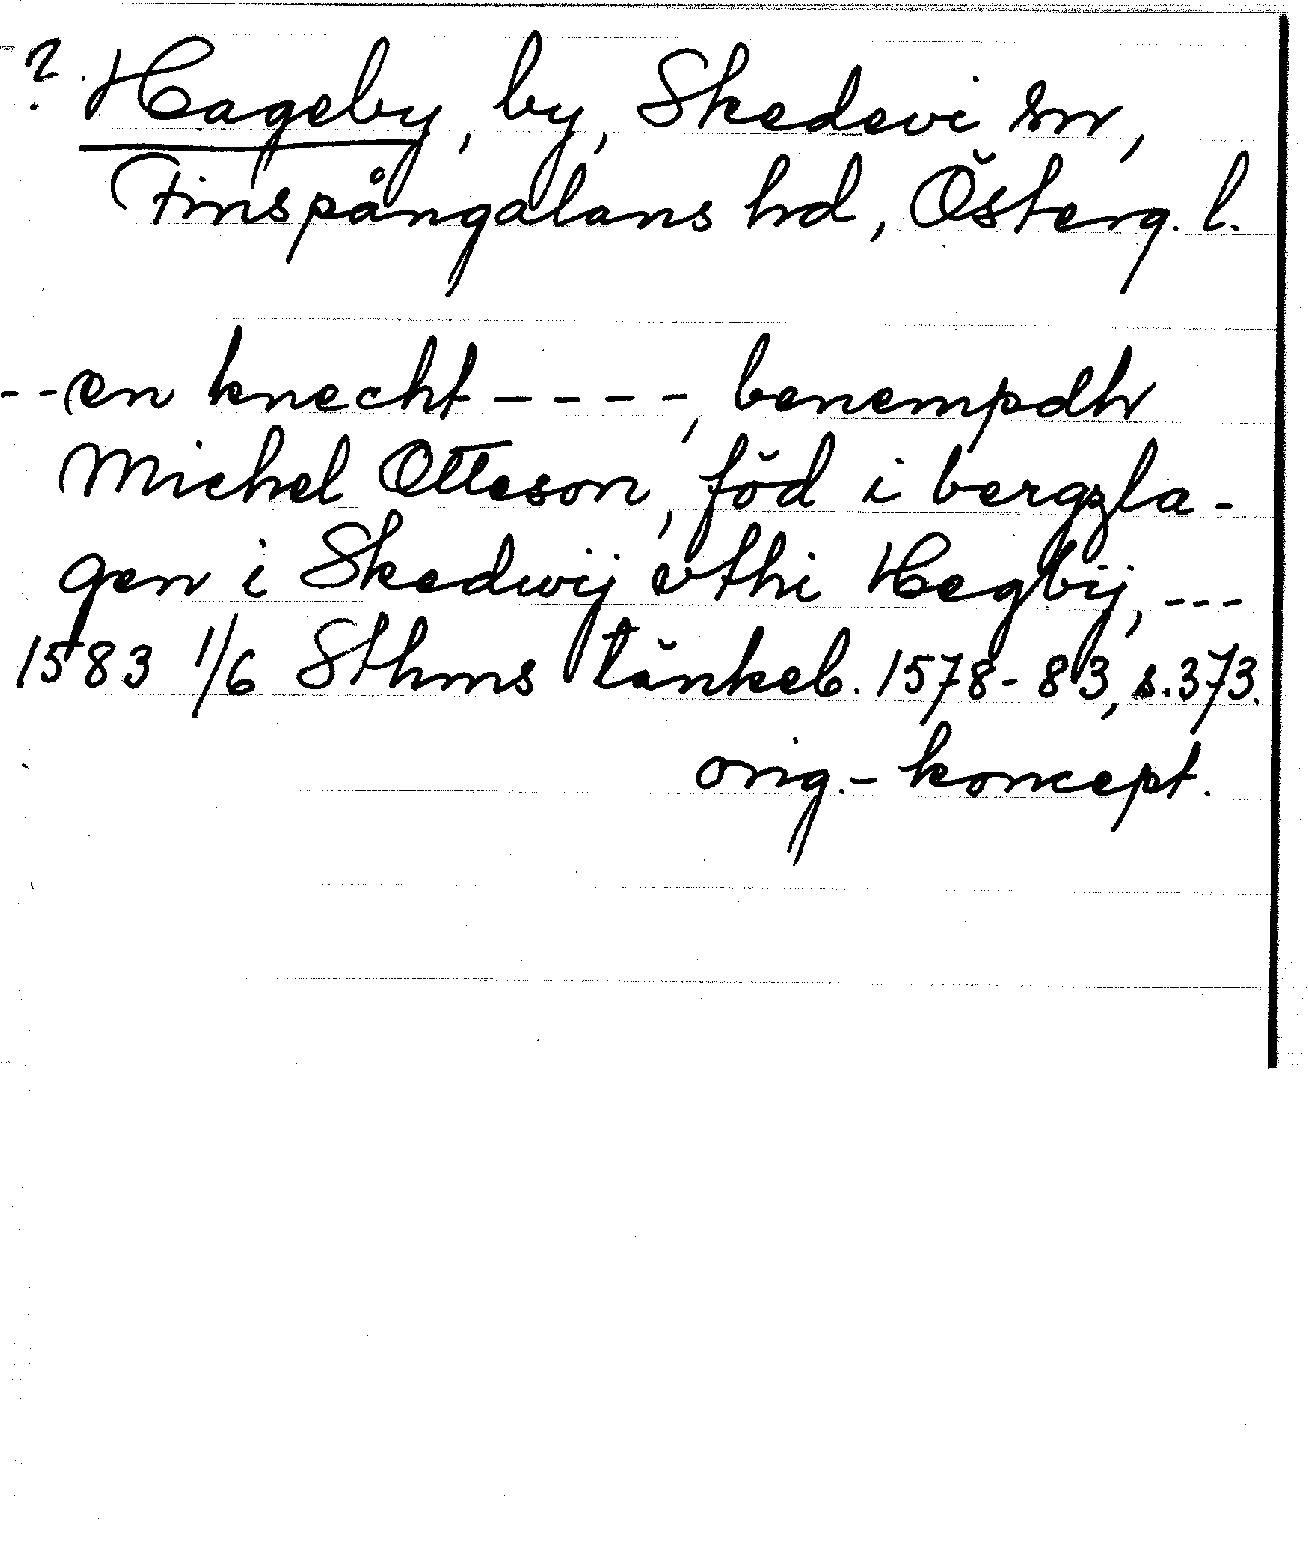 ? Hageby, by, Skedevi sn,
Finspångalans hd, Österg. l.
--en knecht ----, benempdh
Michel Otteson, föd i bergzla-
gen i Skedwij vthi Hegbij, ---
1583 1/6 Sthms tänkeb. 1578-83, s.373.
orig.-koncept.